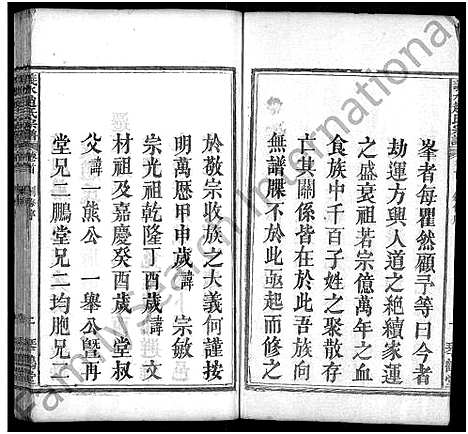 峯者每瞿然顧予等曰今者
劫運方興人道之絕續家運
之盛衰祖若宗億萬年之血
食族中千百子姓之聚散存
亡其關係皆在於此吾族向
無譜牒不於此亟起而修之
於敬宗收族之大義何謹按
明萬歷甲申歲諱 宗敏
宗光祖乾隆丁酉歲諱 文
材祖及嘉慶癸酉歲 堂叔
父諱一熊公 一舉公暨再
堂兄二鵬堂兄二均胞兄二
FamilySearch International